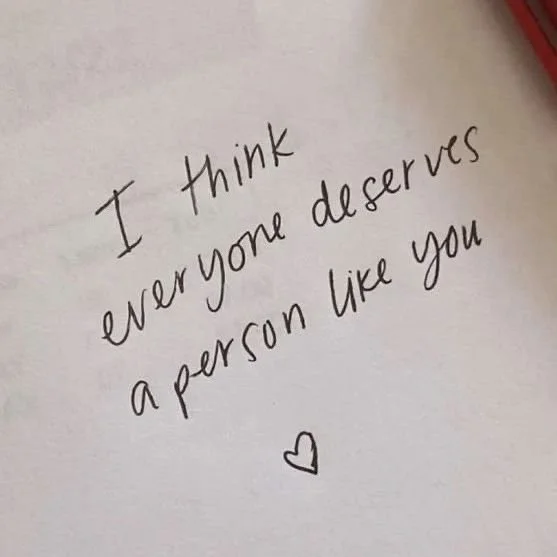 I think
everyone deserves
a person like you